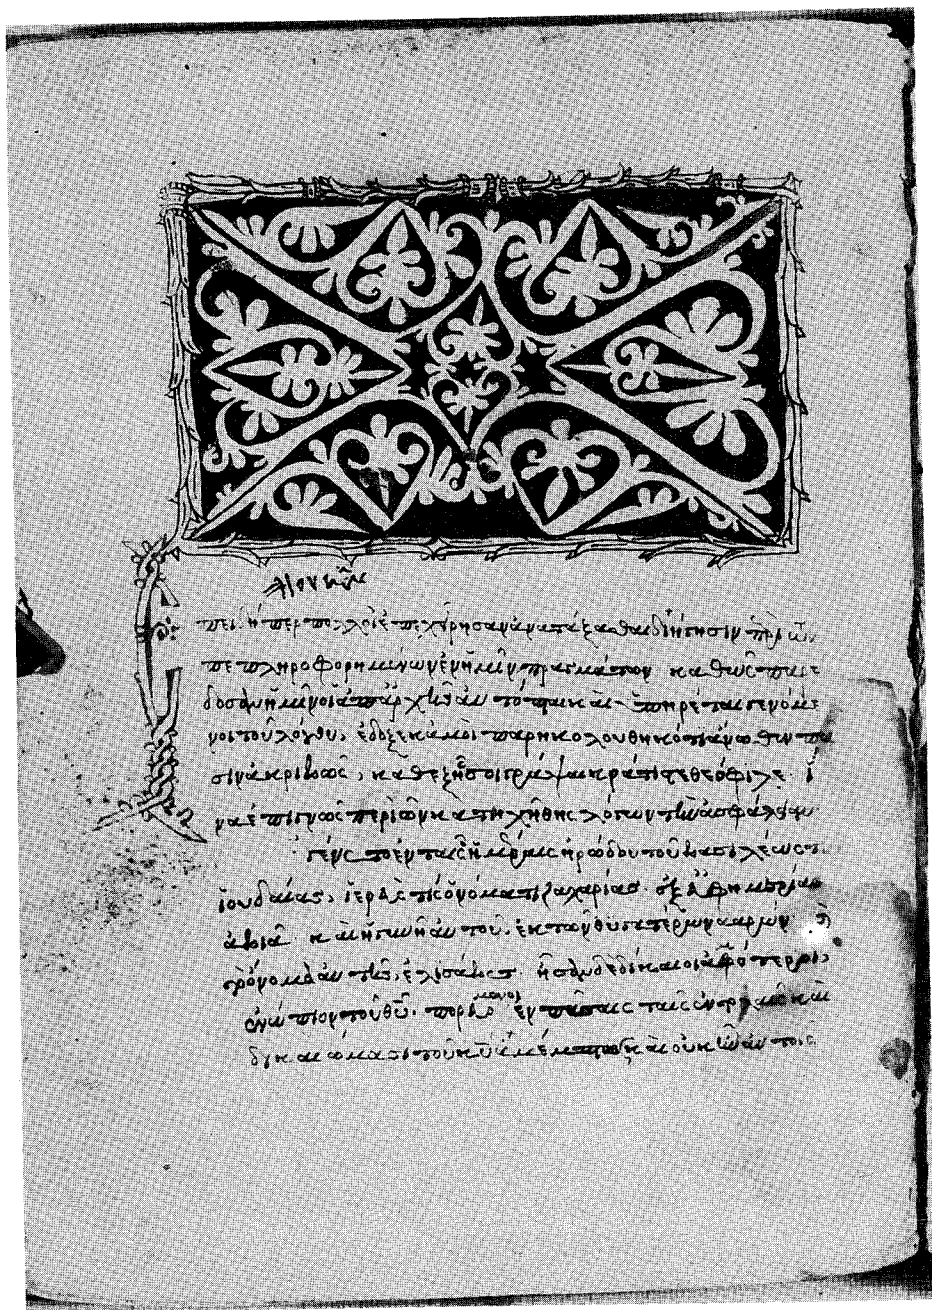 Ἐπειδήπερ πολλοὶ ἐπεχείρησαν ἀνατάξασθαι διήγησιν περὶ τῶν
πεπληροφορημένων ἐν ἡμῖν πραγμάτων καθὼς παρέ
δοσαν ἡμῖν οἱ ἀπ' ἀρχῆς αὐτόπται καὶ ὑπηρέται γενόμε
νοι τοῦ λόγου, ἔδοξε κἀμοὶ παρηκολουθηκότι ἄνωθεν πᾶ
σιν ἀκριβῶς, καθεξῆς σοι γράψαι κράτιστε θεόφιλε· ἵ
να ἐπιγνῶς περὶ ὧν κατηχήθης λόγων τὴν ἀσφάλειαν
γένετο ἐν ταῖς ἡμέραις ἡρώδου τοῦ βασιλέως τ
ἰουδαίας, ἱερεύς τις ὀνόματι ζαχαρίας· ἐξ ἐφημερίας
ἀβιὰ καὶ ἡ γυνὴ αὐτοῦ, ἐκ τῶν θυγατέρων ἀαρών
τὸ ὄνομα αὐτῆς, ἐλισάβετ· ἦσαν δὲ δίκαιοι ἀμφότεροι,
ἐνώπιον τοῦ θυ· πορευόμενοι ἐν πάσαις ταῖς ἐντολαῖς καὶ
δικαιώμασι τοῦ κυ ἄμεμπτοι καὶ οὐκ ἦν αὐτοῖς